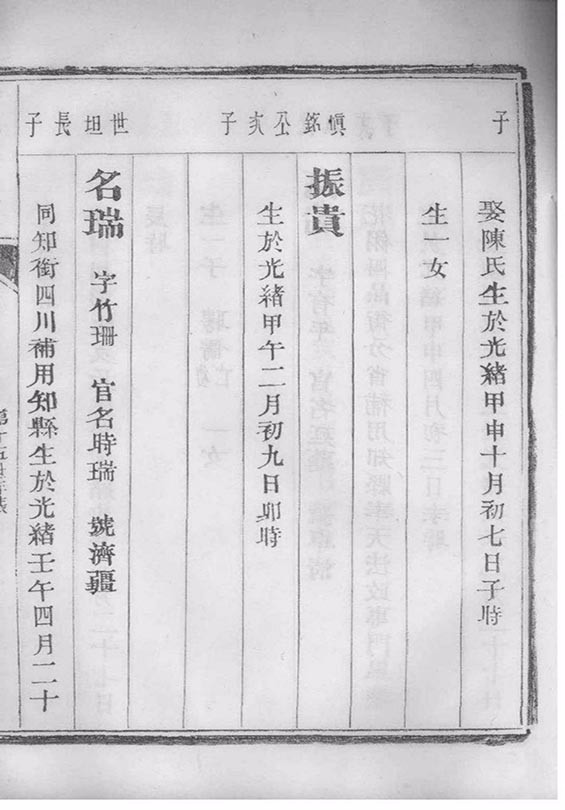 子
娶陳氏生於光緒甲申十月初七日子時
生一女
慎銘公次子
振貴
生於光緒甲午二月初九日卯時
世坦長子
名瑞 字竹珊 官名時瑞 號濟疆
同知銜四川補用知縣生於光緒壬午四月二十